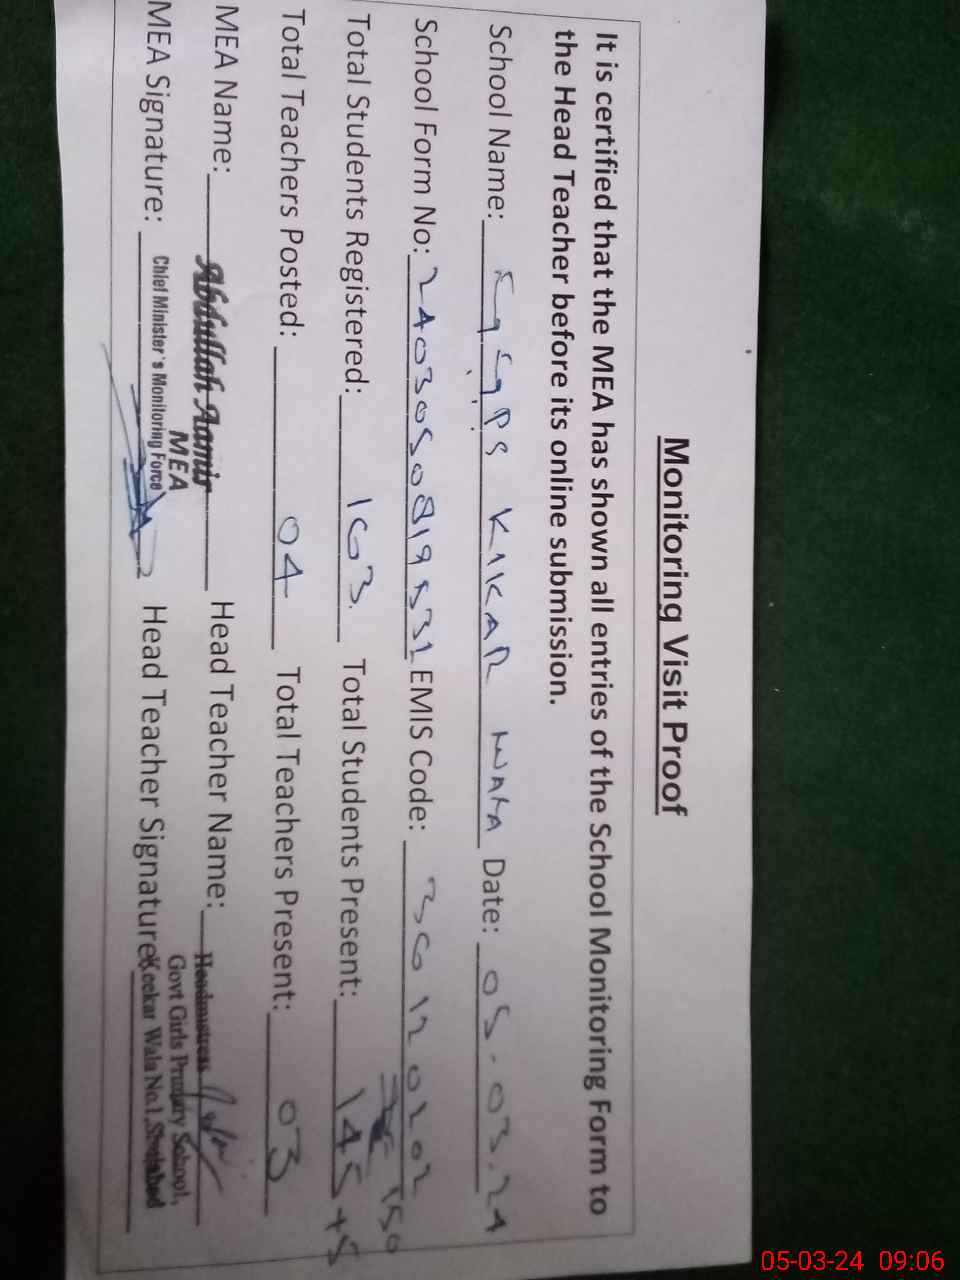 Monitoring Visit Proof
It is certified that the MEA has shown all entries of the School Monitoring Form to
the Head Teacher before its online submission.
School Name: GGPS KIKAR WALA Date: 05.03.24
School Form No: EMIS Code:
Total Students Registered: 163 Total Students Present: 145+5 150
Total Teachers Posted: 04 Total Teachers Present: 03
MEA Name: Abdullah Aamir Head Teacher Name: Headmistress
MEA
Govt Girls Primary School,
MEA Signature: Chief Minister's Monitoring Force Head Teacher Signature: Keekar Wala No.1,
05-03-24 09:06